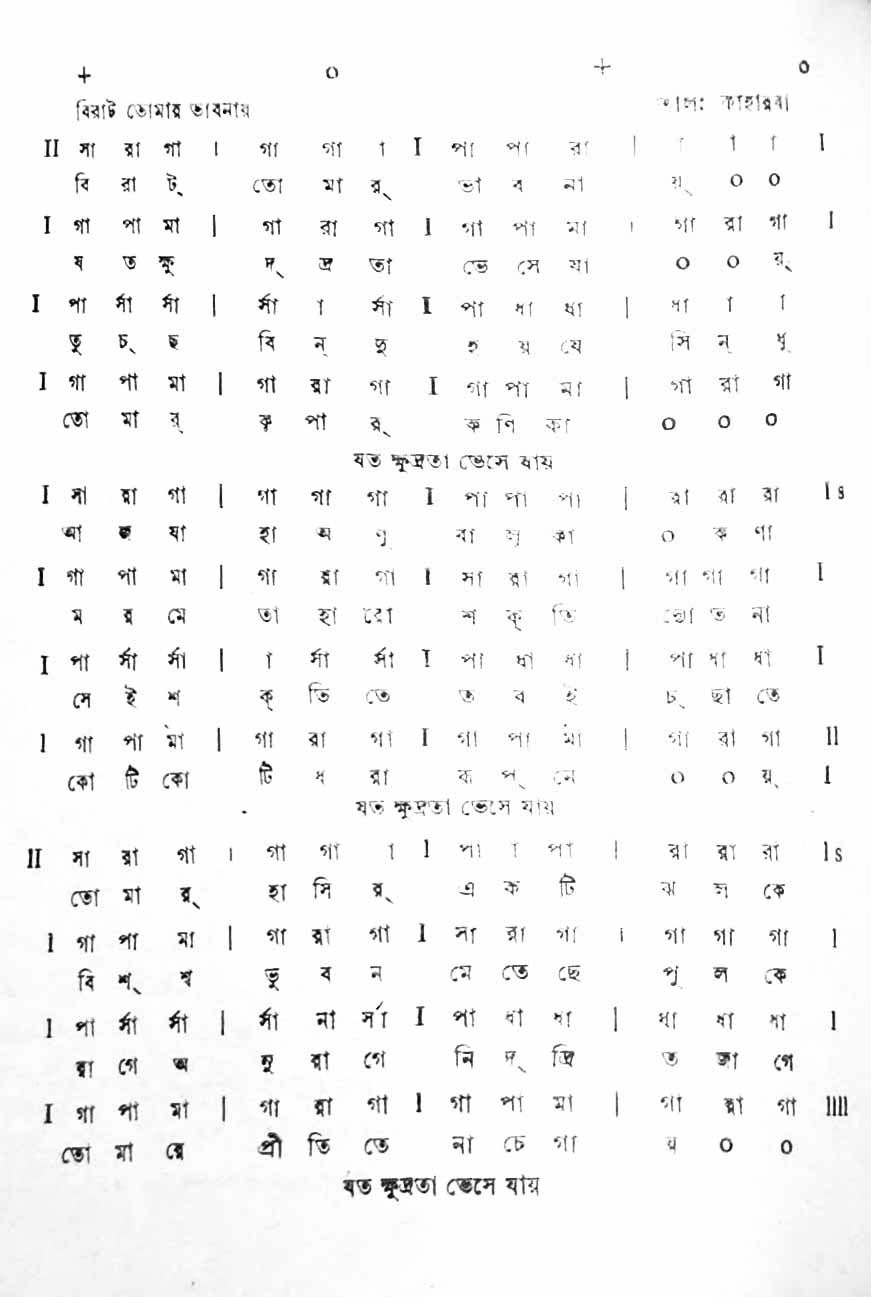 + ০ + ০
বিরাট তোমার ভাবনায় তাল: কাহারবা
II সা রা গা । গা গা া I পা পা রা | া া া I
বি রা ট্ তো মা র্ ভা ব না য়্ ০ ০
I গা পা মা | গা রা গা I গা পা মা । গা রা গা I
য ত ক্ষু দ্ দ্র তা ভে সে যা ০ ০ য়্
I পা র্সা র্সা | র্সা া র্সা I পা ধা ধা | ধা া া
তু চ্ ছ বি ন্ দু হ য় যে সি ন্ ধু
I গা পা মা | গা রা গা I গা পা মা | গা রা গা
তো মা র্ কৃ পা র্ ক ণি কা ০ ০ ০
যত ক্ষুদ্রতা ভেসে যায়
I সা রা গা | গা গা গা I পা পা পা | রা রা রা Is
আ হা অ ণু বা লু কা ০ ক ণা
I গা পা মা | গা রা গা I সা রা গা | গা গা গা I
ম র মে তা হা রো শ ক্ তি দ্যো ত না
I পা র্সা র্সা | া র্সা র্সা I পা ধা ধা | পা ধা ধা I
সে ই শ ক্ তি তে ত ব ই চ্ ছা তে
I গা পা মা | গা রা গা I গা পা মা | গা রা গা II
কো টি কো টি ধ রা রূ প্ নে ০ ০ য়্ I
যত ক্ষুদ্রতা ভেসে যায়
II সা রা গা । গা গা া I পা া পা | রা রা রা Is
তো মা র্ হা সি র্ এ ক টি ঝ ল কে
I গা পা মা | গা রা গা I সা রা গা । গা গা গা I
বি শ্ ব ভু ব ন মে তে ছে পু ল কে
I পা র্সা র্সা | র্সা না র্সা I পা ধা ধা | ধা ধা ধা I
রা গে অ নু রা গে নি দ্ দ্রি ত জা গে
I গা পা মা | গা রা গা I গা পা মা | গা রা গা IIII
তো মা রে প্রী তি তে না চে গা য় ০ ০
যত ক্ষুদ্রতা ভেসে যায়